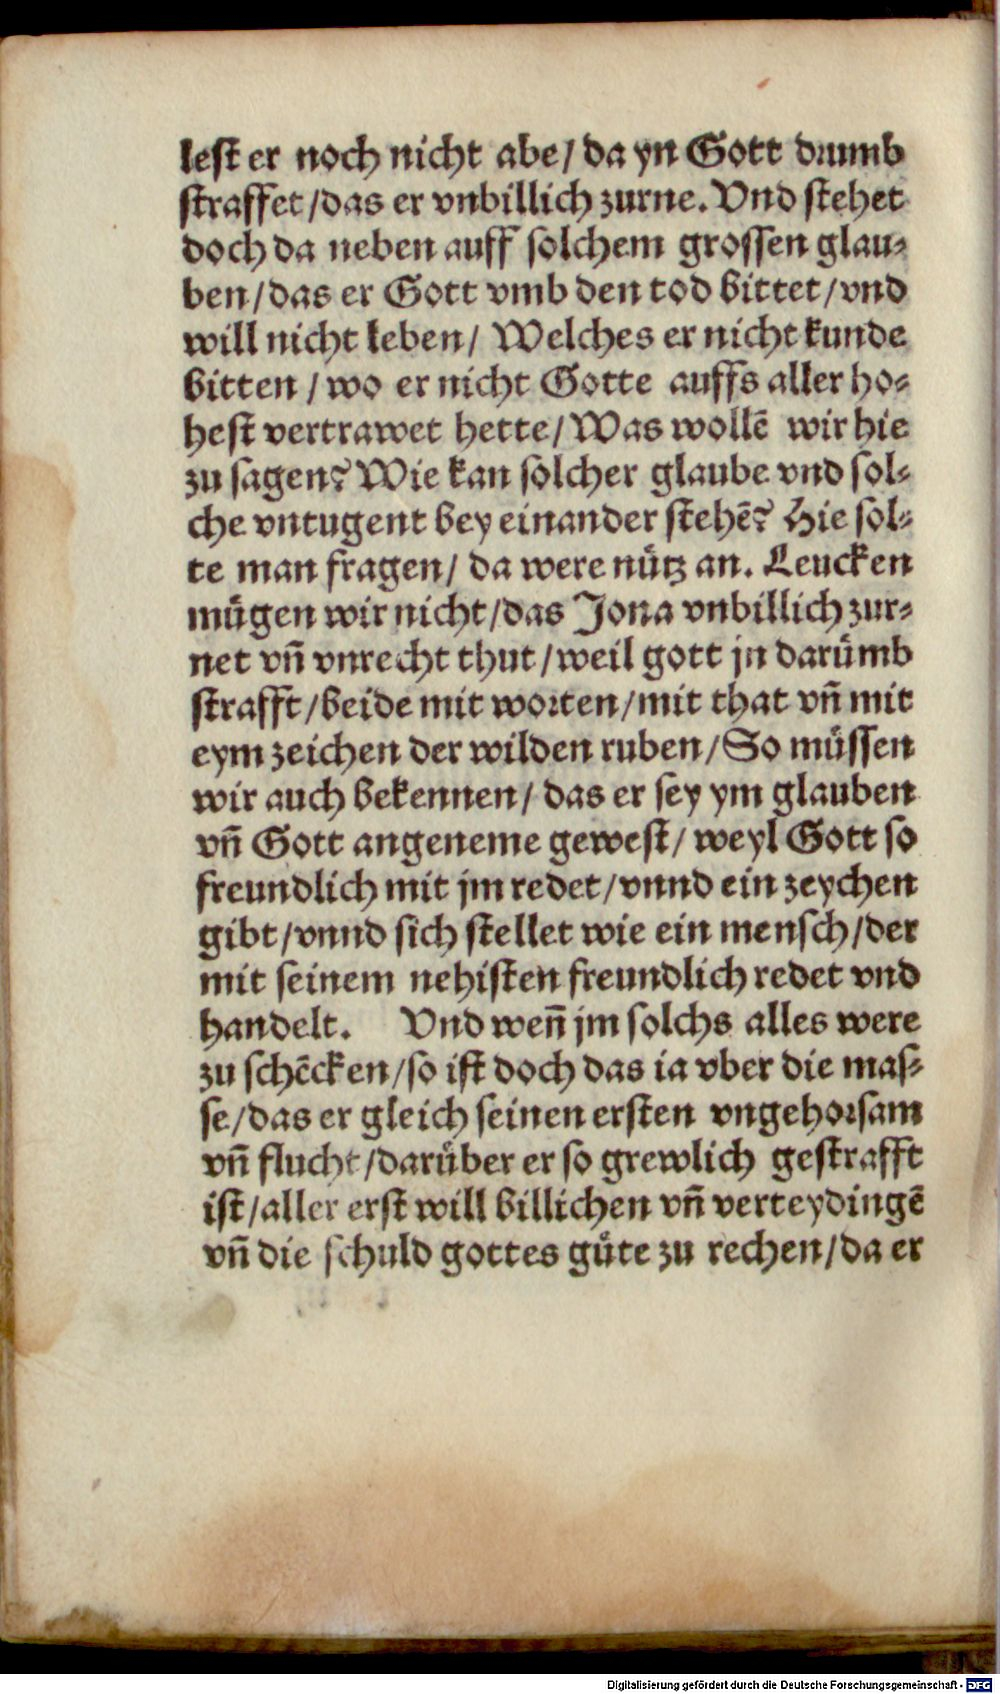 lest er noch nicht abe/ da yn Gott drumb
straffet/das er vnbillich zurne. Vnd stehet
doch da neben auff solchem grossen glau-
ben/das er Gott vmb den tod bittet/vnd
will nicht leben/ Welches er nicht kunde
bitten/wo er nicht Gotte auffs aller ho-
hest vertrawet hette/ Was wollē wir hie
zu sagen? Wie kan solcher glaube vnd sol-
che vntugent bey einander stehē? Hie sol-
te man fragen/ da were nütz an. Leucken
mügen wir nicht/das Jona vnbillich zur-
net vn̄ vnrecht thut/weil gott jn darümb
strafft/beide mit worten/mit that vn̄ mit
eym zeichen der wilden ruben/So müssen
wir auch bekennen/ das er sey ym glauben
vn̄ Gott angeneme gewest/ weyl Gott so
freundlich mit jm redet/vnnd ein zeychen
gibt/vnnd sich stellet wie ein mensch/der
mit seinem nehisten freundlich redet vnd
handelt. Vnd wen̄ jm solchs alles were
zu schēcken/so ist doch das ia vber die mas-
se/das er gleich seinen ersten vngehorsam
vn̄ flucht/darüber er so grewlich gestrafft
ist/aller erst will billichen vn̄ verteydingē
vn̄ die schuld gottes güte zu rechen/da er
Digitalisierung gefördert durch die Deutsche Forschungsgemeinschaft - DFG